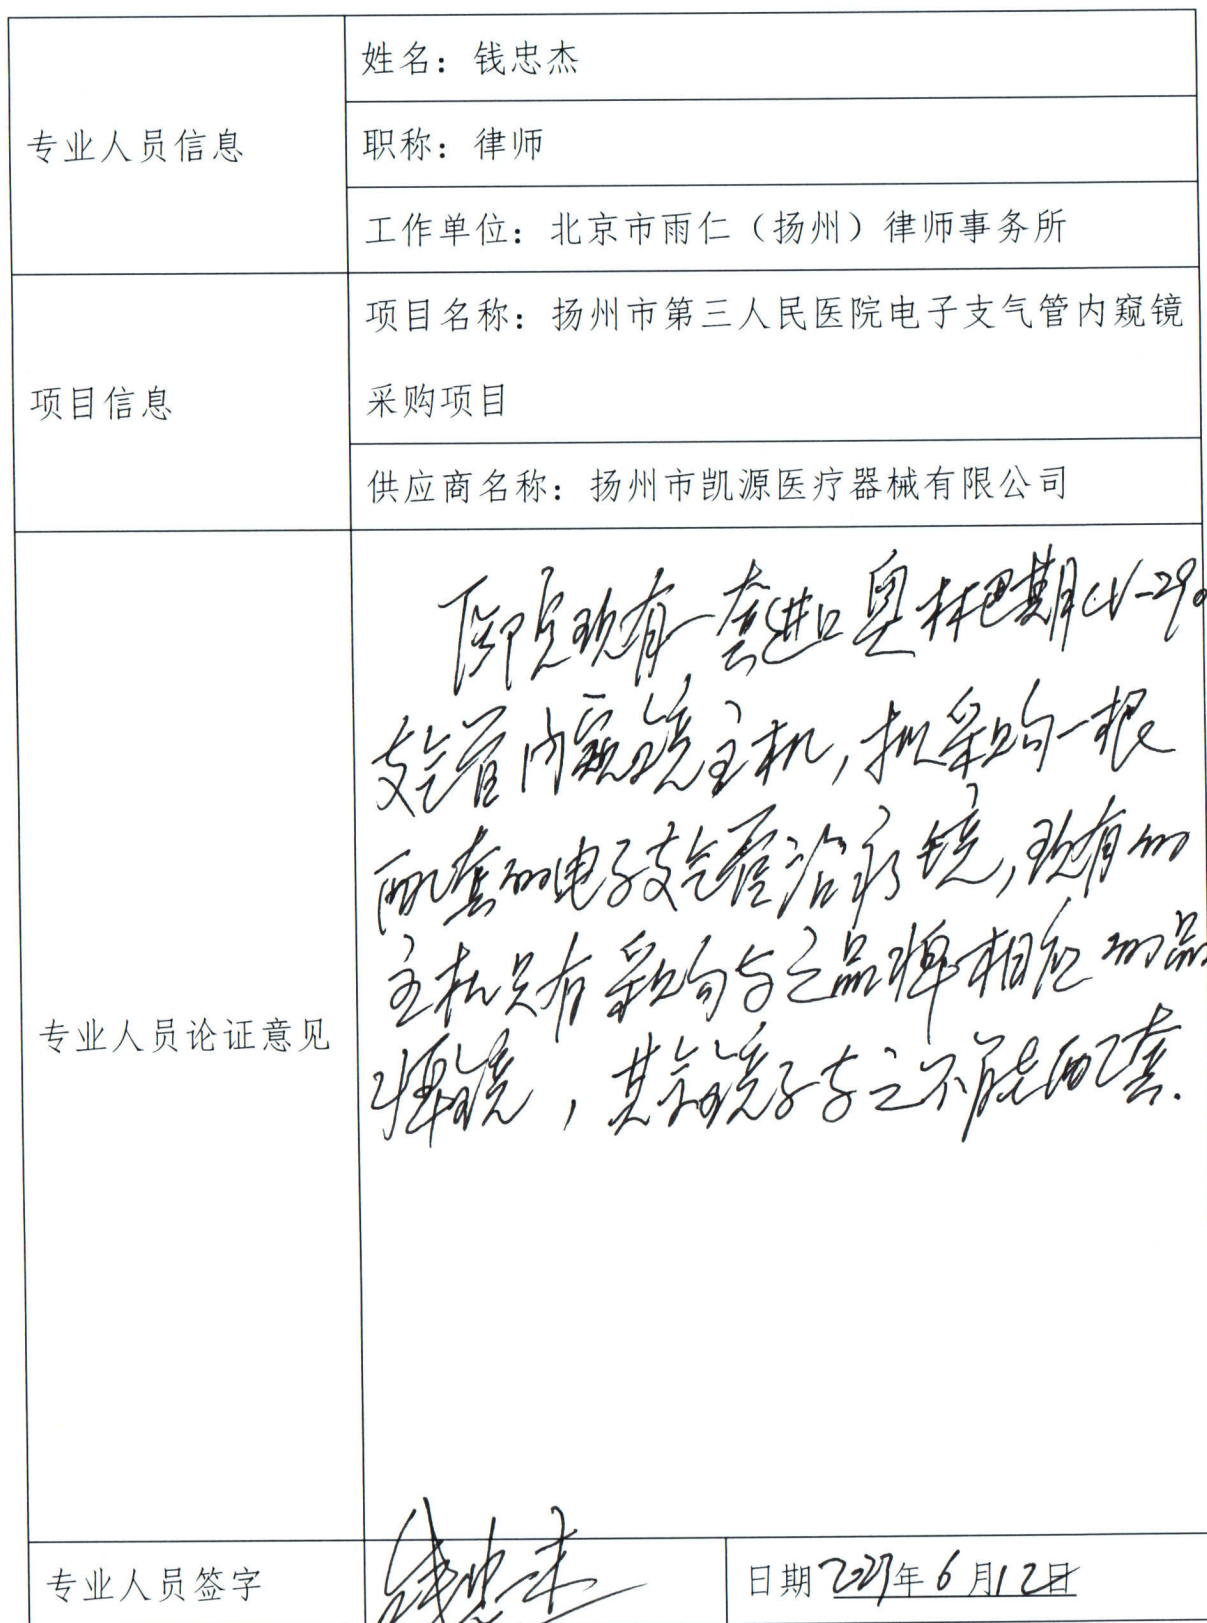 专业人员信息
姓名：钱忠杰
职称：律师
工作单位：北京市雨仁（扬州）律师事务所
项目信息
项目名称：扬州市第三人民医院电子支气管内窥镜
采购项目
供应商名称：扬州市凯源医疗器械有限公司
专业人员论证意见
医院现有一套进口奥林巴斯CV-290
支气管内窥镜主机，拟采购一根
配套的电子支气管治疗镜，现有的
主机只有采购与之品牌相应的品
牌镜，其余镜子与之不能配套.
专业人员签字
钱忠杰
日期 年6月12日